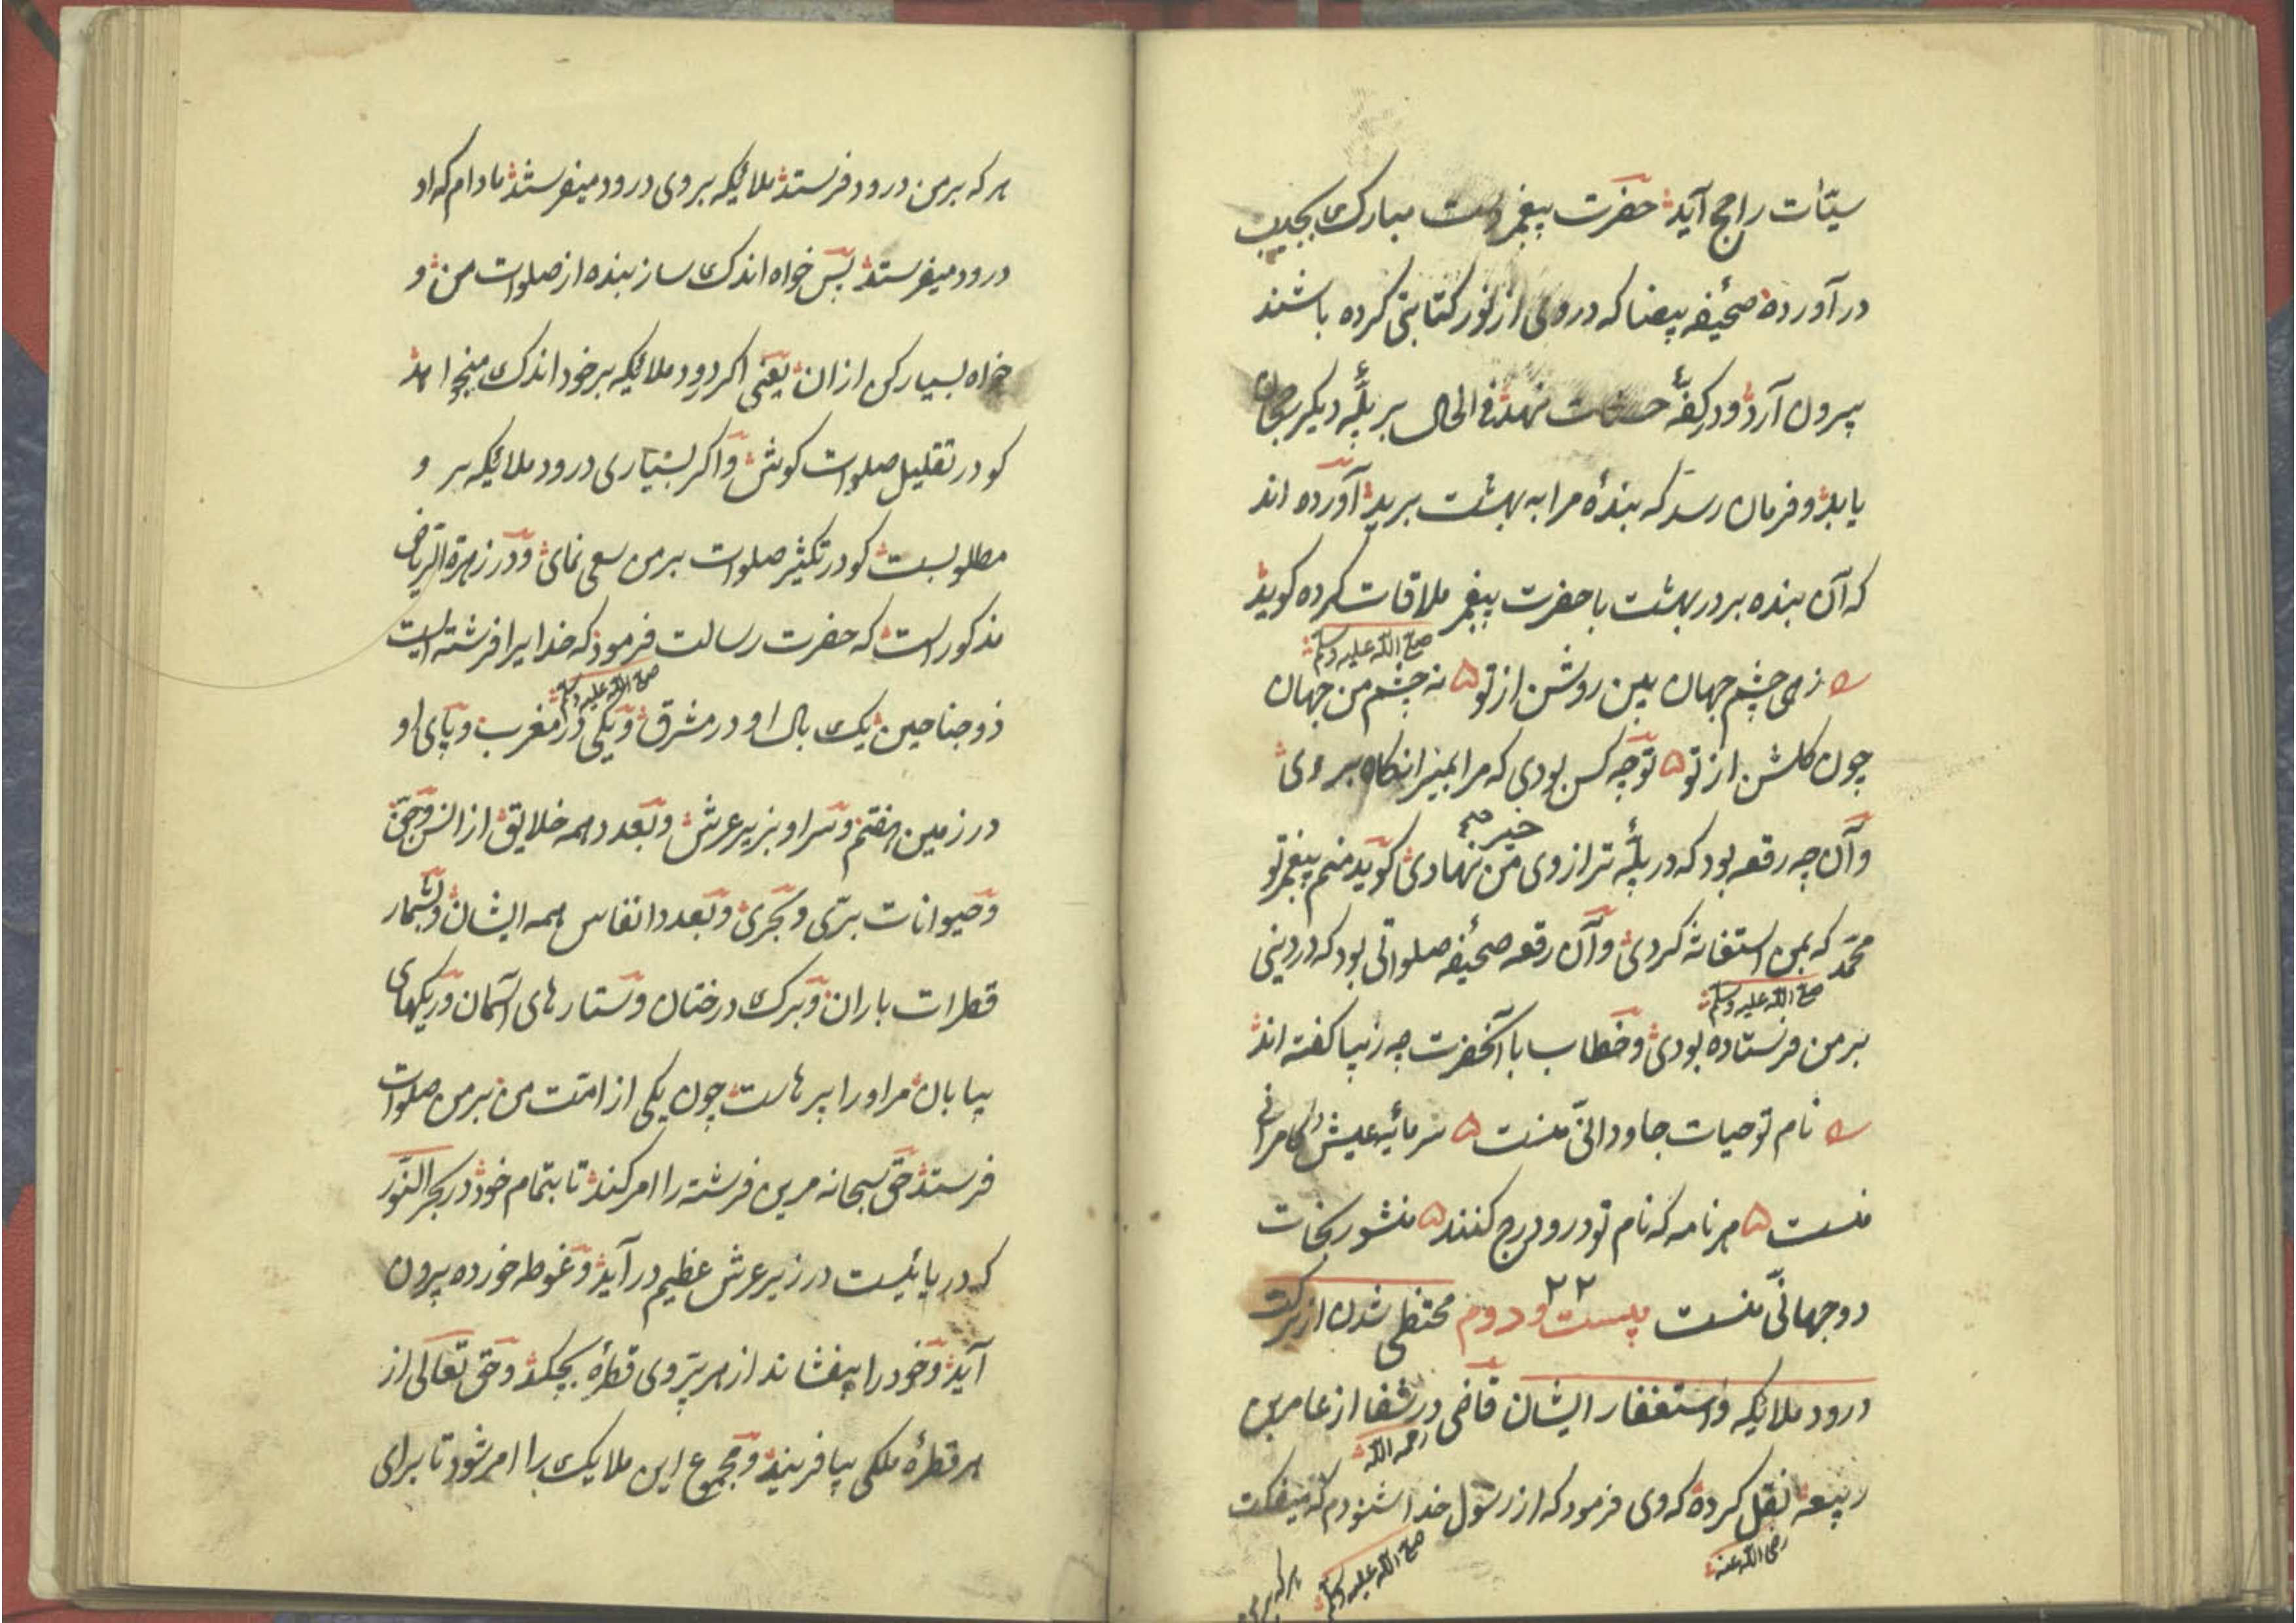 سیّئات راجح آید حضرت پیغمبر دست مبارک بجیب
در آورده صحیفه بیضا که در وی از نور کتابتی کرده باشند
بیرون آرد و در کفهٔ حسنات نهد فی الحال بر پلّهٔ دیکر رجحان
یابد و فرمان رسد که بندهٔ مرا به بهشت برید آورده اند
که آن بنده بر در بهشت با حضرت پیغمبر ملاقات کرده کوید
صلی الله علیه وسلم
زهی چشم جهان بین روشن از تو ه نه چشم من جهان
چون کلشن از تو ه تو چه کس بودی که مرا بمیزانکاه بردی
وآن چه رقعه بود که در پلّهٔ ترازوی من نهادی کوید منم پیغمبر تو
خیر
محمّد که بمن استغاثه کردی وآن رقعه صحیفه صلواتی بود که در دینی
صلی الله علیه وسلم
بر من فرستاده بودی و خطاب با آنحضرت چه زیبا کفته اند
نام تو حیات جاودانیّ منست ه سرمایهٔ عیش و کامرانی
منست ه هر نامه که نام تو درو درج کنند ه منشور نجات
دو جهانیّ منست بیست و دوم ۲۲ محتظی شدن از برکت
درود ملایکه و استغفار ایشان قاضی در شفا از عامربن
رحمه الله
ربیعه نقل کرده که وی فرمود که از رسول خدا شنودم که میفکت
رضی الله عنه
صلی الله علیه وسلم
هر که بر من
هر که بر من درود فرستد ملایکه بر وی درود میفرستند مادام که او
درود میفرستد پس خواه اندک ساز بنده از صلوات من و
خواه بسیار کن ازان یعنی اکر درود ملایکه بر خود اندک میخواهد
کو در تقلیل صلوات کوش و اکر بسیاری درود ملایکه بر و
مطلوبست کو در تکثیر صلوات بر من سعی نمای و در زهرة الریاض
مذکور است که حضرت رسالت فرمود که خدایرا فرشته ایست
صلی الله علیه وسلم
ذوجناحین یک بال او در مشرق و یکی در مغرب و پای او
در زمین هفتم و سر او بزیر عرش و بعدد همه خلایق از انس و جنّ
و حیوانات برّی و بحری و بعدد انفاس همه ایشان و بشمار
قطرات باران و برک درختان و ستارهای آسمان و ریکهای
بیابان مر او را پرهاست چون یکی از امّت من بر من صلوات
فرستد حق سبحانه مرین فرشته را امر کند تا بتمام خود در بحر النّور
که دریائیست در زیر عرش عظیم در آید و غوطه خورده بیرون
آید و خود را بیفشاند از هر پر وی قطرهٔ بچکد و حق تعالی از
هر قطرهٔ ملکی بیافریند و مجموع این ملایک را امر شود تا برای